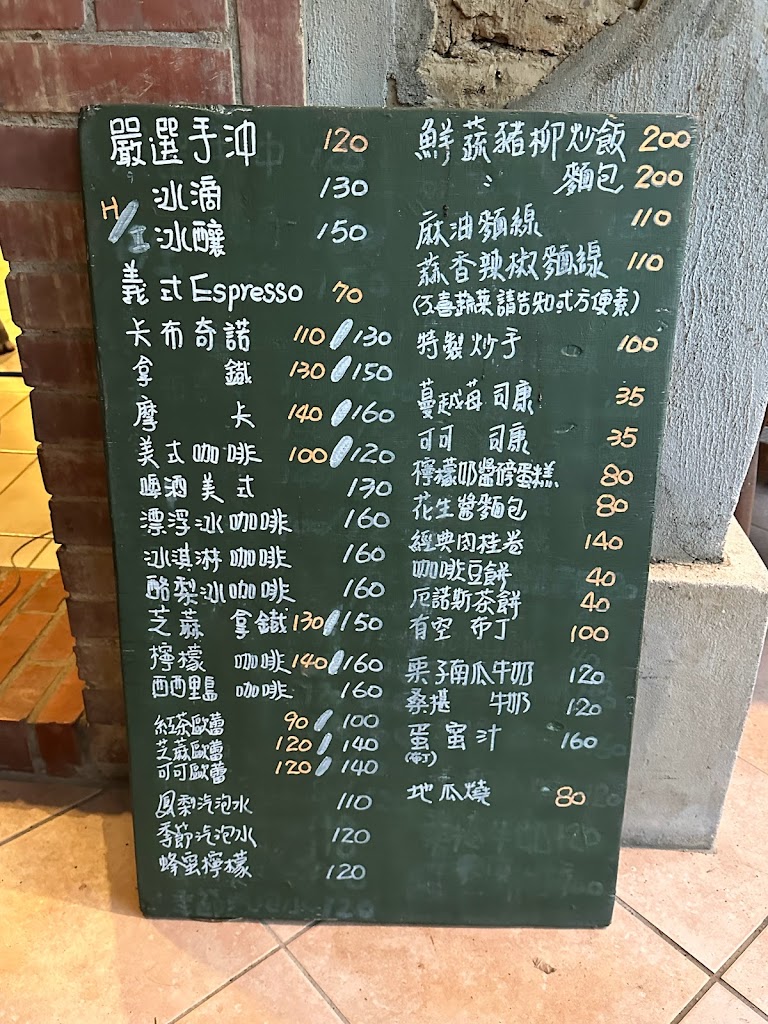 嚴選手沖 120
冰滴 130
H/I 冰釀 150
義式Espresso 70
卡布奇諾 110/130
拿鐵 130/150
摩卡 140/160
美式咖啡 100/120
啤酒美式 130
漂浮冰咖啡 160
冰淇淋咖啡 160
酪梨冰咖啡 160
芝蔴拿鐵 130/150
檸檬咖啡 140/160
西西里島咖啡 160
紅茶歐蕾 90/100
芝蔴歐蕾 120/140
可可歐蕾 120/140
鳳梨汽泡水 110
季節汽泡水 120
蜂蜜檸檬 120
鮮蔬豬柳炒飯 200
〃 麵包 200
麻油麵線 110
蒜香辣椒麵線 110
(不喜蔬菜請告知或方便素)
特製炒手 100
蔓越莓司康 35
可可司康 35
檸檬奶醬磅蛋糕 80
花生醬麵包 80
經典肉桂卷 140
咖啡豆餅 40
厄諾斯茶餅 40
有空布丁 100
栗子南瓜牛奶 120
桑椹牛奶 120
蛋蜜汁 160
地瓜燒 80